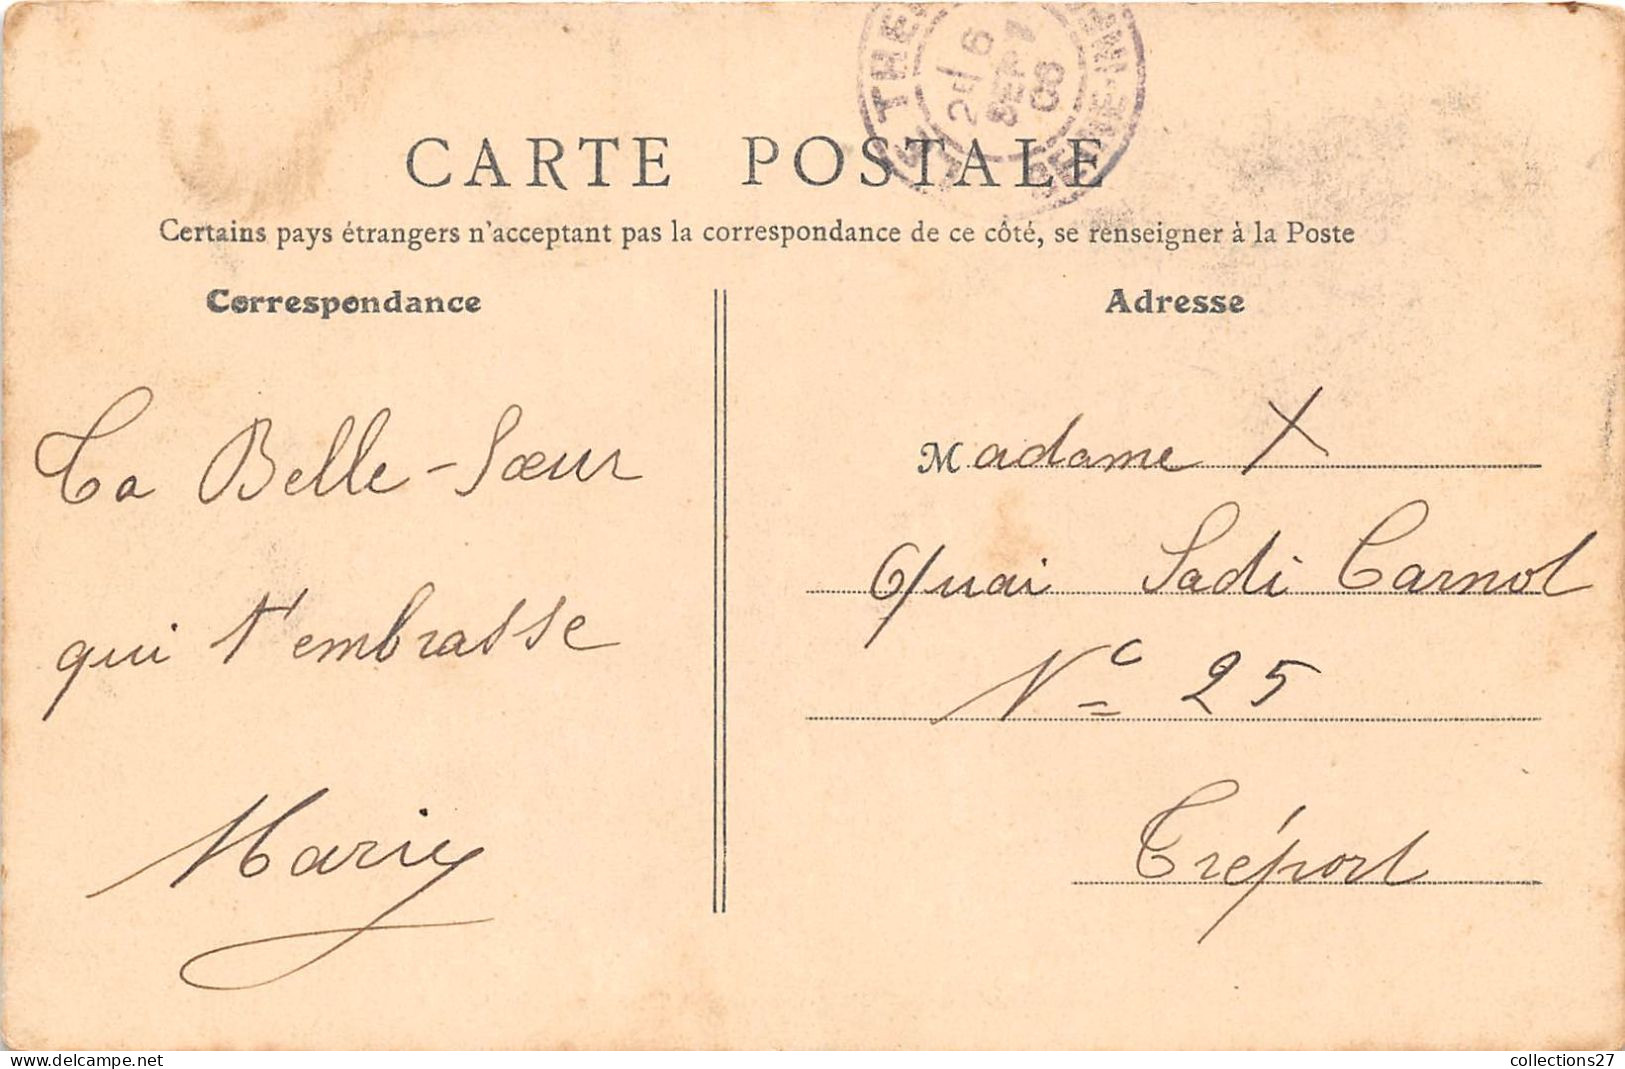 CARTE POSTALE
Certains pays étrangers n'acceptant pas la correspondance de ce côté, se renseigner à la Poste
Correspondance
Ta Belle-Sœur
qui t'embrasse
Marie
Adresse
Madame X
Quai Sadi Carnot
N° 25
Tréport
6
SEPT
08
SEINE-INF
collections27